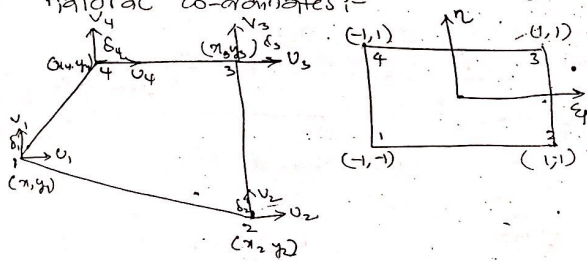 natural co-ordinates :-
V4
δ4
(x4, y4)
4
U4
V3
(x3 y3) δ3
3
U3
V1
δ1
1
U1
(x, y1)
V2
δ2
U2
2
(x2 y2)
η
(-1, 1)
4
(1, 1)
3
ξ
1
2
(-1, -1)
(1, -1)